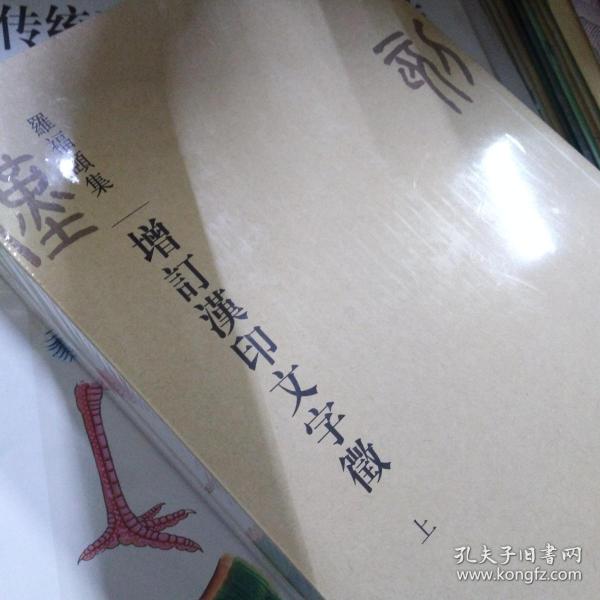 传统
羅福頤集
增訂漢印文字徵
上
漢
印
孔夫子旧书网
www.kongfz.com